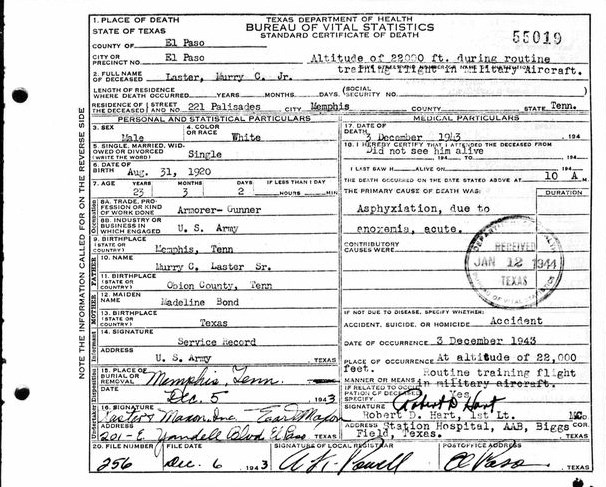 1. PLACE OF DEATH
STATE OF TEXAS
TEXAS DEPARTMENT OF HEALTH
BUREAU OF VITAL STATISTICS
STANDARD CERTIFICATE OF DEATH
55019
COUNTY OF El Paso
CITY OR PRECINCT NO. El Paso
Altitude of 22000 ft. during routine
training flight in military Aircraft.
2. FULL NAME OF DECEASED Laster, Murry C. Jr.
LENGTH OF RESIDENCE WHERE DEATH OCCURRED YEARS MONTHS DAYS (SOCIAL SECURITY NO. )
RESIDENCE OF THE DECEASED STREET AND NO. 221 Palisades CITY Memphis COUNTY STATE Tenn.
PERSONAL AND STATISTICAL PARTICULARS
3. SEX Male 4. COLOR OR RACE White
5. SINGLE, MARRIED, WIDOWED OR DIVORCED (WRITE THE WORD) Single
6. DATE OF BIRTH Aug. 31, 1920
7. AGE YEARS 23 MONTHS 3 DAYS 2 IF LESS THAN 1 DAY HOURS MIN.
8A. TRADE, PROFESSION OR KIND OF WORK DONE Armorer-Gunner
8B. INDUSTRY OR BUSINESS IN WHICH ENGAGED U. S. Army
9. BIRTHPLACE (STATE OR COUNTRY) Memphis, Tenn
10. NAME Murry C. Laster Sr.
11. BIRTHPLACE (STATE OR COUNTRY) Obion County, Tenn
12. MAIDEN NAME Madeline Bond
13. BIRTHPLACE (STATE OR COUNTRY) Texas
14. SIGNATURE Service Record
ADDRESS U. S. Army TEXAS
15. PLACE OF BURIAL OR REMOVAL Memphis, Tenn. TEXAS
DATE Dec. 5 1943
16. SIGNATURE Kaster & Maxon, Inc. Earl Maxon
ADDRESS 201-E. Yandell Blvd. El Paso TEXAS
MEDICAL PARTICULARS
17. DATE OF DEATH 3 December 1943 194
18. I HEREBY CERTIFY THAT I ATTENDED THE DECEASED FROM
Did not see him alive
194 TO 194
I LAST SAW H ALIVE ON 194
THE DEATH OCCURRED ON THE DATE STATED ABOVE AT 10 A. M.
THE PRIMARY CAUSE OF DEATH WAS: DURATION
Asphyxiation, due to
anoxemia, acute.
CONTRIBUTORY CAUSES WERE:
RECEIVED
JAN 12 1944
TEXAS
IF NOT DUE TO DISEASE, SPECIFY WHETHER:
ACCIDENT, SUICIDE, OR HOMICIDE Accident
DATE OF OCCURRENCE 3 December 1943
PLACE OF OCCURRENCE At altitude of 22,000
feet. Routine training flight
MANNER OR MEANS in military aircraft.
IF RELATED TO OCCUPATION OF DECEASED, SPECIFY Yes
SIGNATURE Robert D. Hart
Robert D. Hart, 1st Lt. MC
ADDRESS Station Hospital, AAB, Biggs
Field, Texas.
20. FILE NUMBER FILE DATE SIGNATURE OF LOCAL REGISTRAR POSTOFFICE ADDRESS
256 Dec. 6 1943 El Paso TEXAS
NOTE THE INFORMATION CALLED FOR ON THE REVERSE SIDE
Occupation
FATHER
MOTHER
Informant